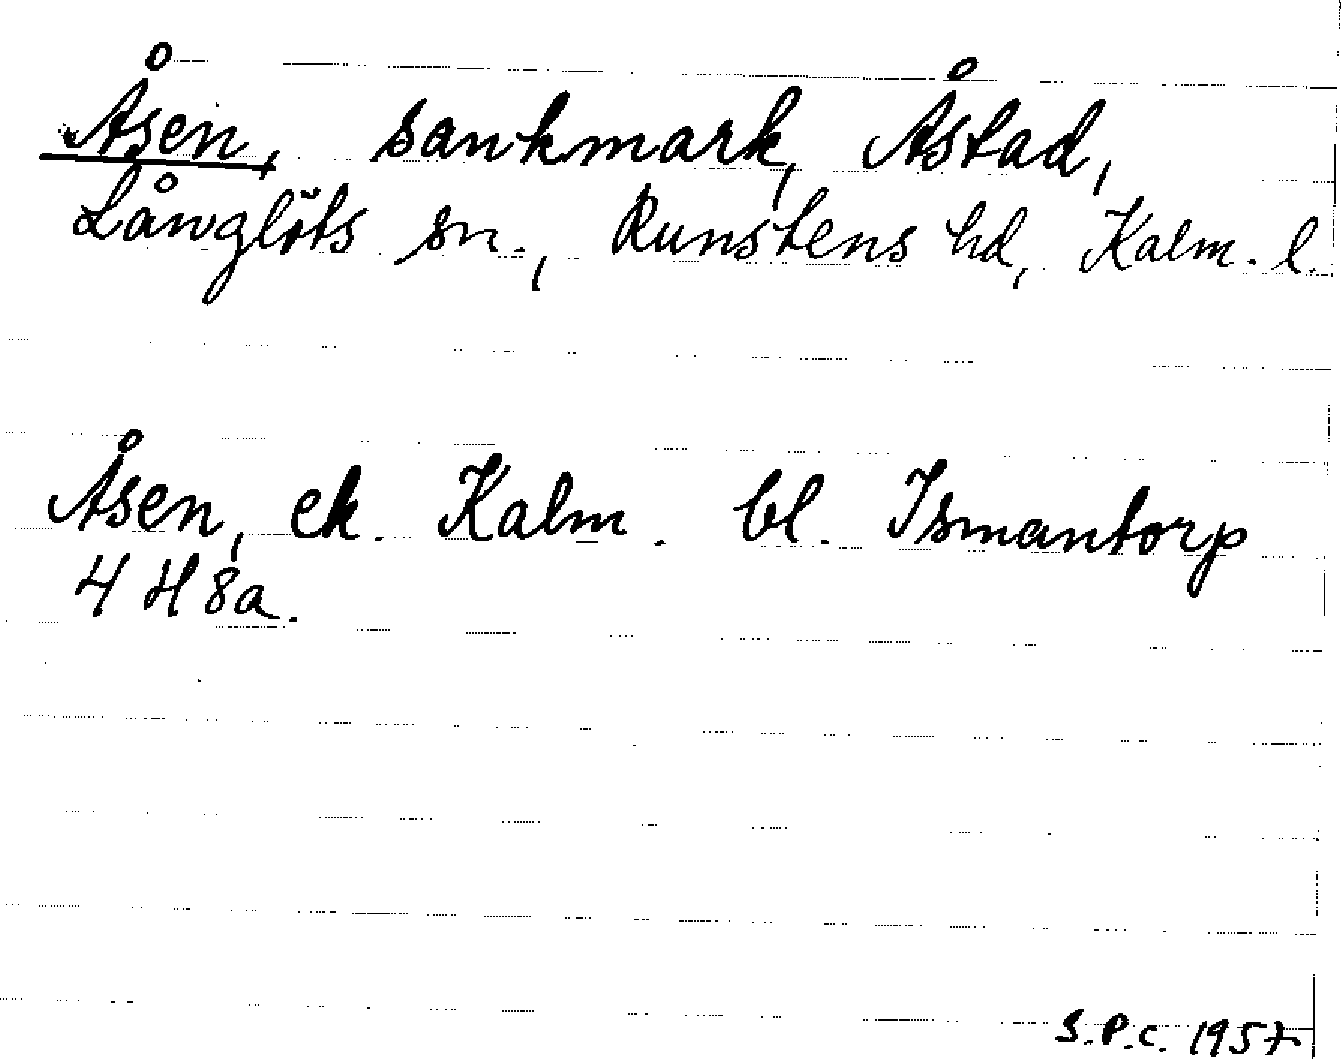 Åsen, sankmark, Åstad,
Långlöts sn., Runstens hd, Kalm. l.
Åsen, ek. Kalm. bl. Ismantorp
4 H 8a.
S.P.C. 1957